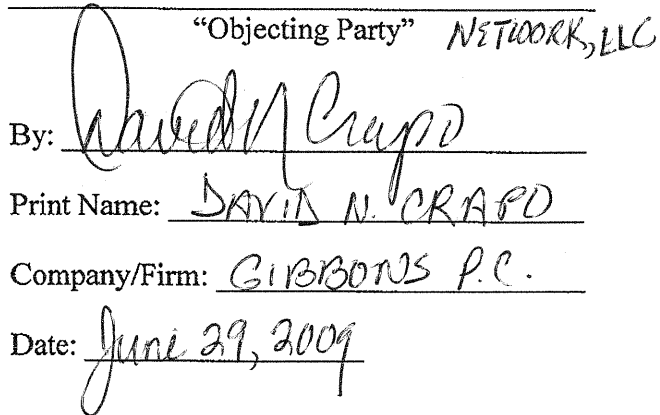 "Objecting Party" NETWORK, LLC
By: David N Crapo
Print Name: DAVID N. CRAPO
Company/Firm: GIBBONS P.C.
Date: June 29, 2009